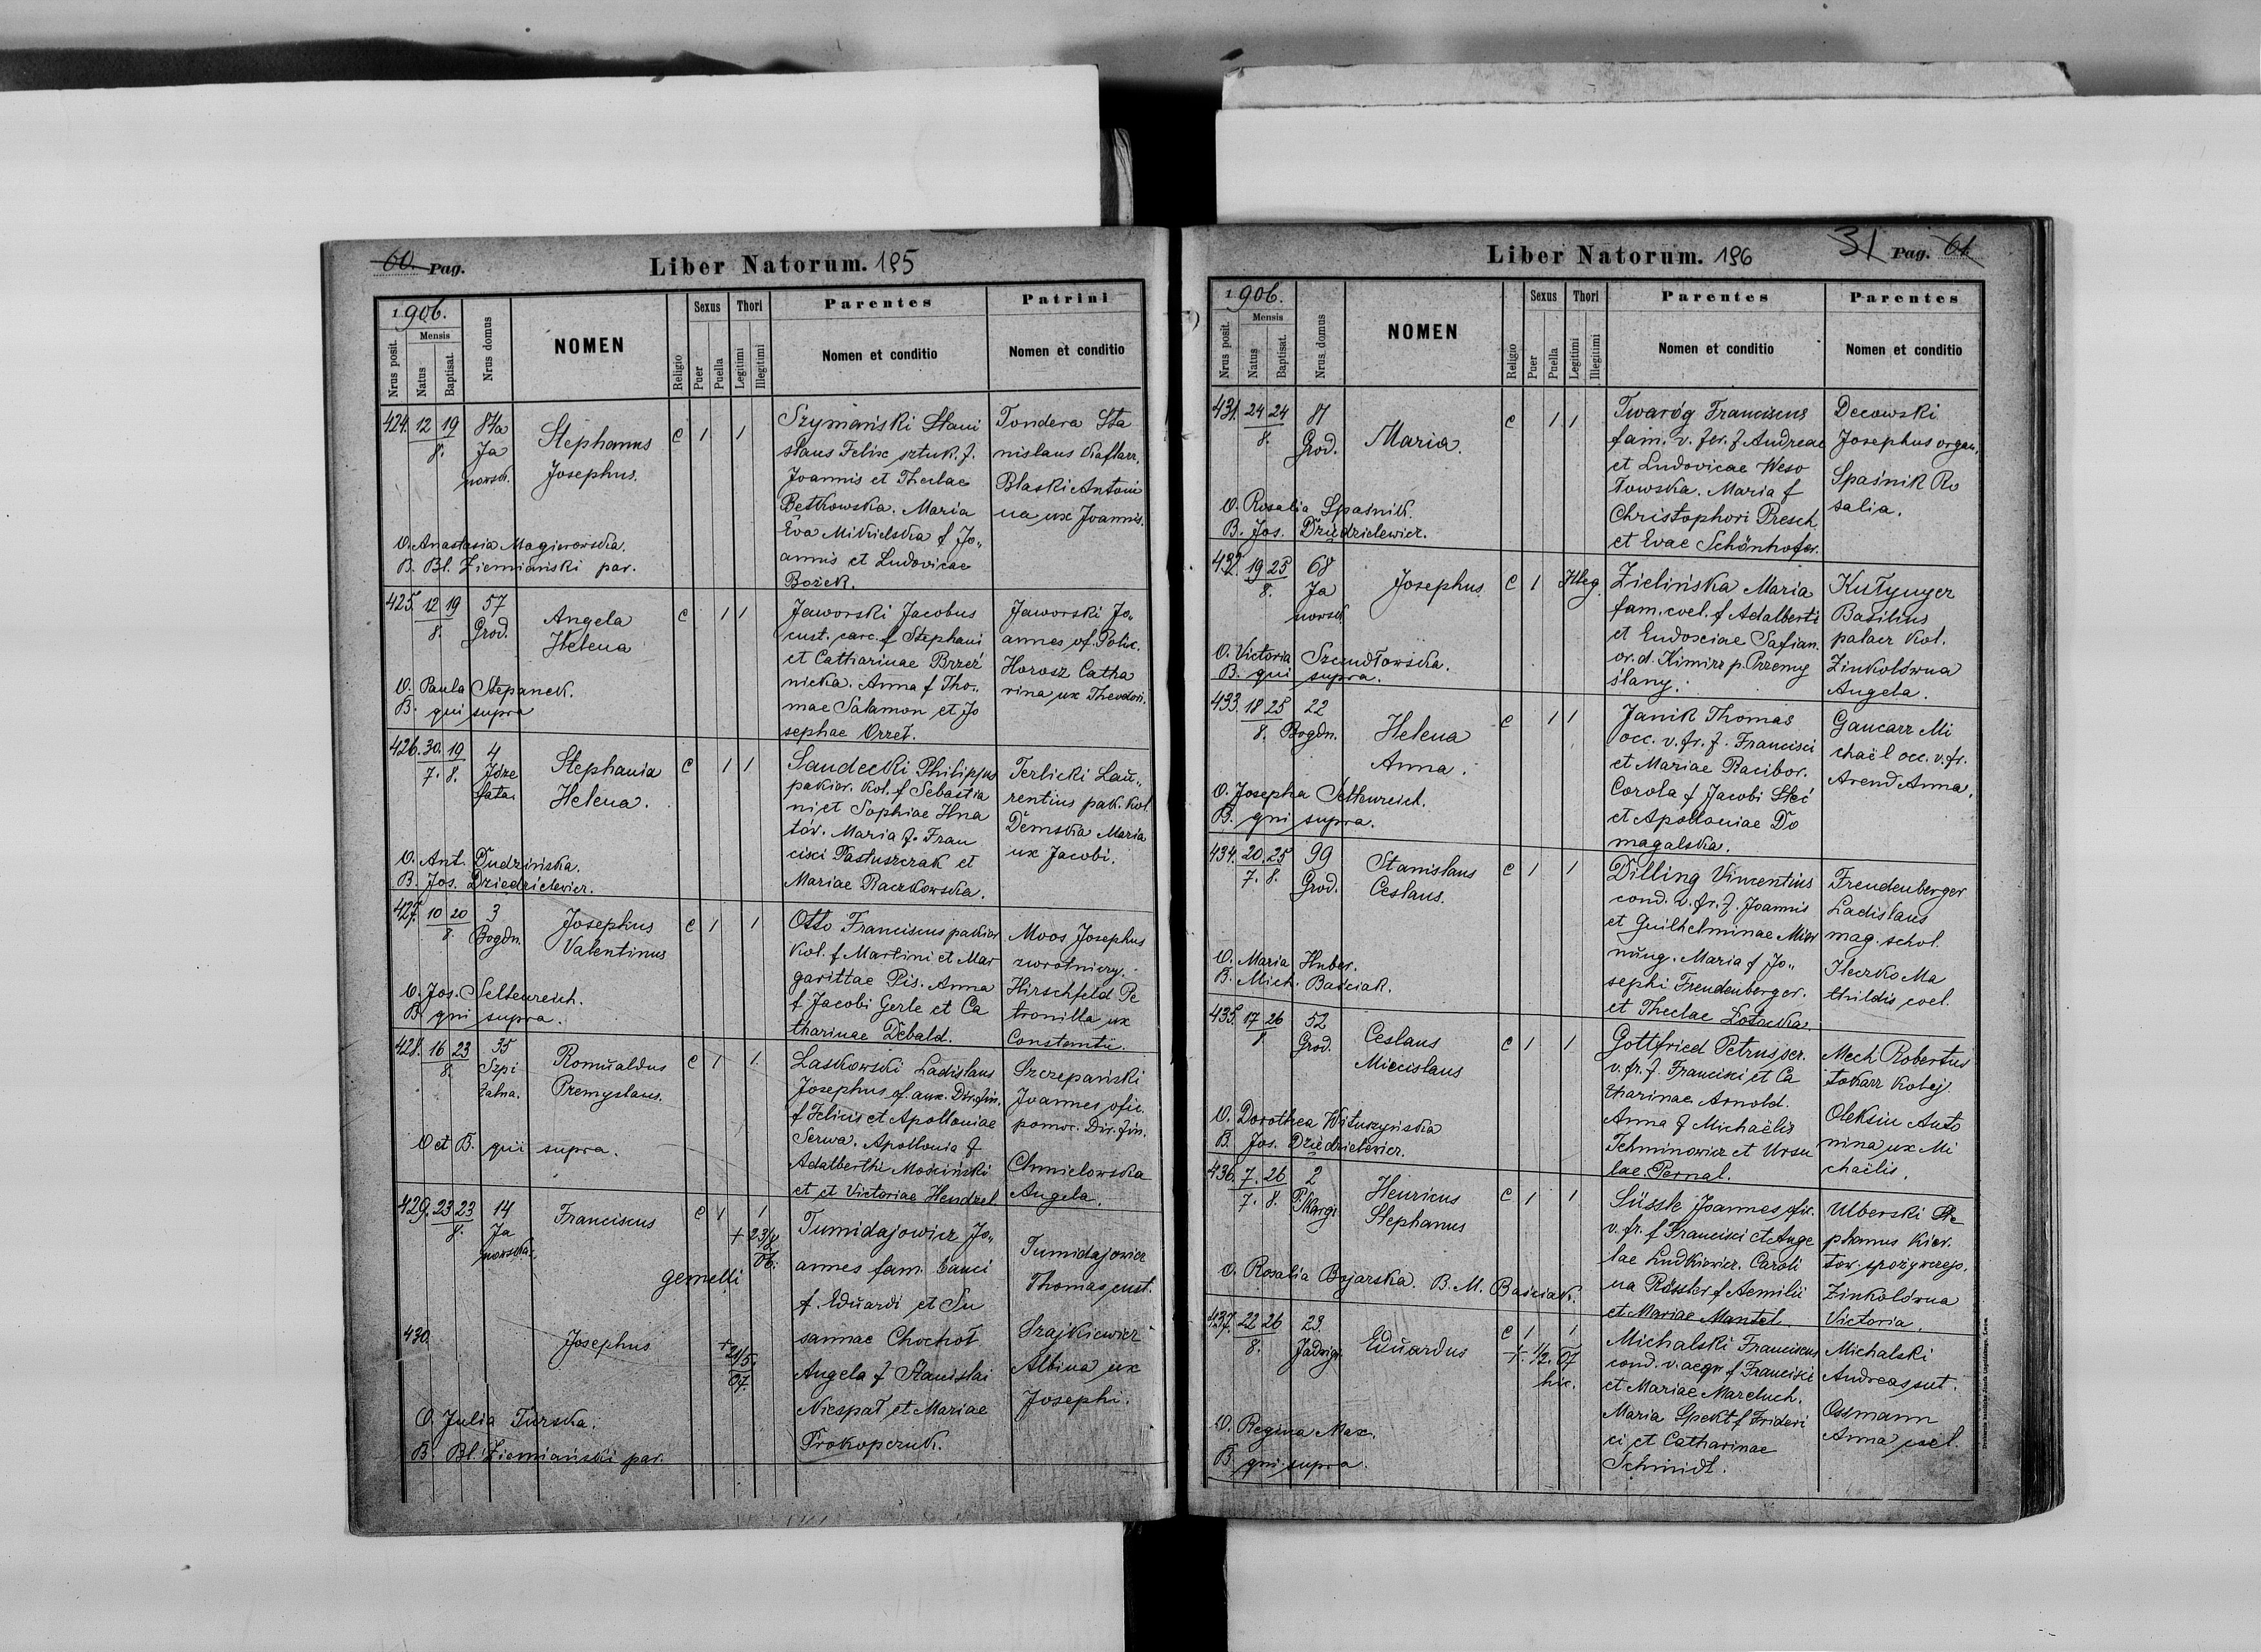 60. Pag.
Liber Natorum. 195
1906.
Nrus posit.
Mensis
Natus
Baptisat.
Nrus domus
NOMEN
Religio
Sexus
Puer
Puella
Thori
Legitimi
Illegitimi
Parentes
Nomen et conditio
Patrini
Nomen et conditio
424. 12 19
8.
Ja
nowsk.
Stephanus
Josephus.
C 1 1
Szymański Stani
slaus Felix sztuk. f.
Joannis et Theclae
Betkowska. Maria
Eva Mikielska f Jo„
annis et Ludovicae
Bożek.
Tondera Sta
nislaus Kaflarz,
Blaski Antoni
na ux Joannis.
O. Anastasia Magierowska.
B. Bl. Ziemiański par.
425. 12 19
8.
57
Grod.
Angela
Helena
C 1 1
Jaworski Jacobus
cust. carc. f Stephani
et Catharinae Brzeź
nicka. Anna f Tho„
mae Salamon et Jo
sephae Orzeł.
Jaworski Jo„
annes of. Polic.
Horosz Catha
rina ux Theodori.
O. Paula Stepanek.
B. qui supra
426. 30. 19
7. 8.
4
Józe
fata.
Stephania
Helena.
C 1 1
Sandecki Philippus
pakier. kol. f Sebastia
ni et Sophiae Hna
tów. Maria f. Fran
cisci Pastuszczak et
Mariae Raczkowska.
Terlicki Lau„
rentius pak. kol.
Demska Maria
ux Jacobi.
O. Ant. Dudzińska.
B. Jos. Dziedzielewicz.
427. 10 20
8.
3
Bogdn.
Josephus
Valentinus
C 1 1
Otto Franciscus pakier
kol. f Martini et Mar
garittae Pis. Anna
f Jacobi Gerle et Ca
tharinae Debald.
Moos Josephus
zwrotniczy.
Hirschfeld Pe
tronilla ux
Constantii.
O. Jos. Seltenreich.
B. qui supra.
428. 16 23
8.
35
Szpi
talna.
Romualdus
Premyslaus.
C 1 1.
Laskowski Ladislaus
Josephus of. aux. Dir. fin.
f Felicis et Apolloniae
Serwa. Apollonia f
Adalberthi Mościński
et et Victoriae Hendzel
Szczepański
Joannes ofic.
pomoc. Dir. fin.
Chmielowska
Angela.
O et B. qui supra.
429. 23 23
8.
14
Ja
nowska.
Franciscus
C 1 1
+ 23/8
06.
gemelli
Tumidajowicz Jo„
annes fam. banci
f. Eduardi et Su
sannae Chochoł
Angela f Stanislai
Niespał et Mariae
Prokopczuk.
Tumidajowicz
Thomas cust.
Szajkiewicz
Albina ux
Josephi.
430.
Josephus
+ 21/5.
07.
O. Julia Turska.
B. Bl. Ziemiański par.
31 Pag. 61
Liber Natorum. 196
1906.
Nrus posit.
Mensis
Natus
Baptisat.
Nrus. domus
NOMEN
Religio
Sexus
Puer
Puella
Thori
Legitimi
Illegitimi
Parentes
Nomen et conditio
Parentes
Nomen et conditio
431. 24 24
8.
Grod.
Maria.
C 1 1
Twaróg Franciscus
fam. v. fer. f Andreae
et Ludovicae Weso
łowska. Maria f
Christophori Presch.
et Evae Schönhofer.
Decowski
Josephus organ.
Spaśnik Ro
salia.
O. Rosalia Spaśnik.
B. Jos. Dziedzielewicz.
432. 19 25
8.
68
Ja
nowsk
Josephus
C 1 Illeg.
Zielińska Maria
fam. coel. f Adalberti
et Eudosciae Safian.
or. d. Kimirz p. Przemy
ślany.
Kułynyer
Basilius
palacz kol.
Zinkolówna
Angela.
O. Victoria Szendłowska.
B. qui supra.
433. 18 25
8.
22
Bogdn.
Helena
Anna.
C 1 1
Janik Thomas
occ. v. fr. f. Francisci
et Mariae Racibor.
Corola f Jacobi Steć
et Apolloniae Do
magalska.
Gancarz Mi
chaël occ. v. fr.
Arend Anna.
O. Josepha Seltenreich.
B. qui supra.
434. 20. 25
7. 8.
99
Grod.
Stanislaus
Ceslaus.
C 1 1
Dilling Vincentius
cond. v. fr. f. Joannis
et Guilhelminae
nung. Maria f Jo„
sephi Freudenberger.
et Theclae Łotocka
Freudenberger
Ladislaus
mag. schol.
Ileczko Ma
thildis coel.
O. Maria Huber.
B. Mich. Baściak.
435. 17 26
8
52
Grod.
Ceslaus
Miecislaus
C 1 1
Gottfried Petrus ser.
v. fr. f. Francisci et Ca
tharinae Arnold.
Anna f Michaëlis
Tchminowicz et Ursu
lae Pernal.
Mech Robertus
tokarz kolej.
Oleksin Anto
nina ux Mi
chaëlis.
O. Dorothea Wituszyńska
B. Jos. Dziedzielewicz.
436. 7. 26
7. 8.
2
P. Skargi
Henricus
Stephanus
C 1 1
Süssle Joannes ofic.
v. fr. f Francisci et Ange
lae Ludkiewicz. Caroli
na Rössler f Aemilii
et Mariae Mantel.
Ulberski Ste
phanus kier.
tow. spożywczego.
Zinkolówna
Victoria.
O. Rosalia Bojarska. B. M. Baściak.
437. 22 26
8.
23.
Jadwigi
Eduardus
C 1 1
+. 1/2. 07
hic.
Michalski Franciscus
cond. v. aegr f Francisci
et Mariae Marcluch.
Maria Spekt f Frideri
ci et Catharinae
Schmidt.
Michalski
Andreas sut.
Ossmann
Anna coel.
O. Regina Max.
B. qui supra.